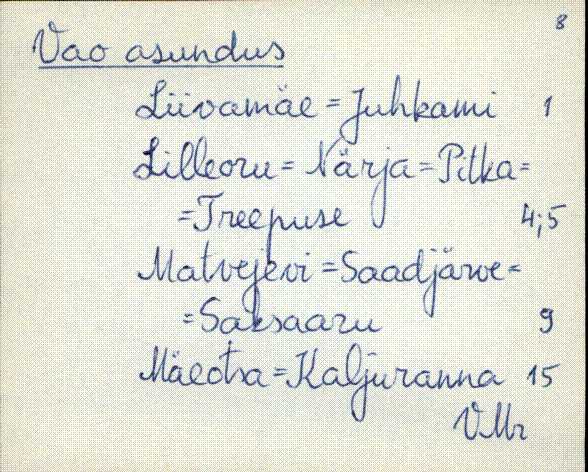 8
Vao asundus
Liivamäe = Juhkami 1
Lilleoru = Närja = Pitka =
= Treepuse 4; 5
Matvejevi = Saadjärve =
= Saksaaru 9
Mäeotsa = Kaljuranna 15
VMr